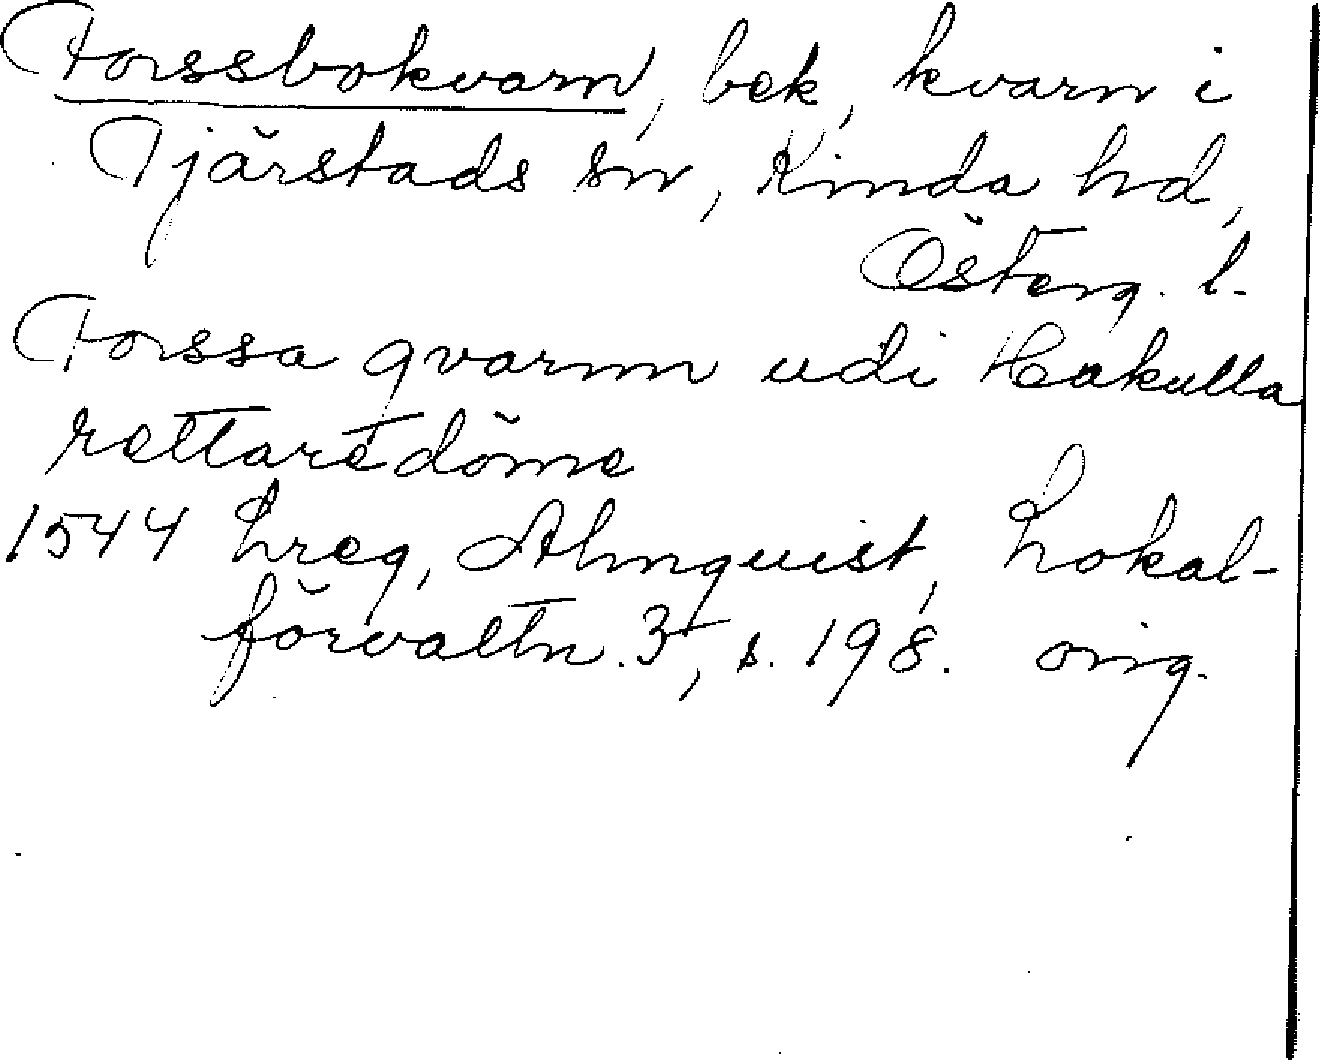 Forssbokvarn, bek, kvarn i
Tjärstads sn, Kinda hd,
Österg. l.
Forssa qvarnn udi Hakulla
rettaredöme
1544 hreg, Almquist, Lokal-
förvaltn. 3, s. 198. orig.